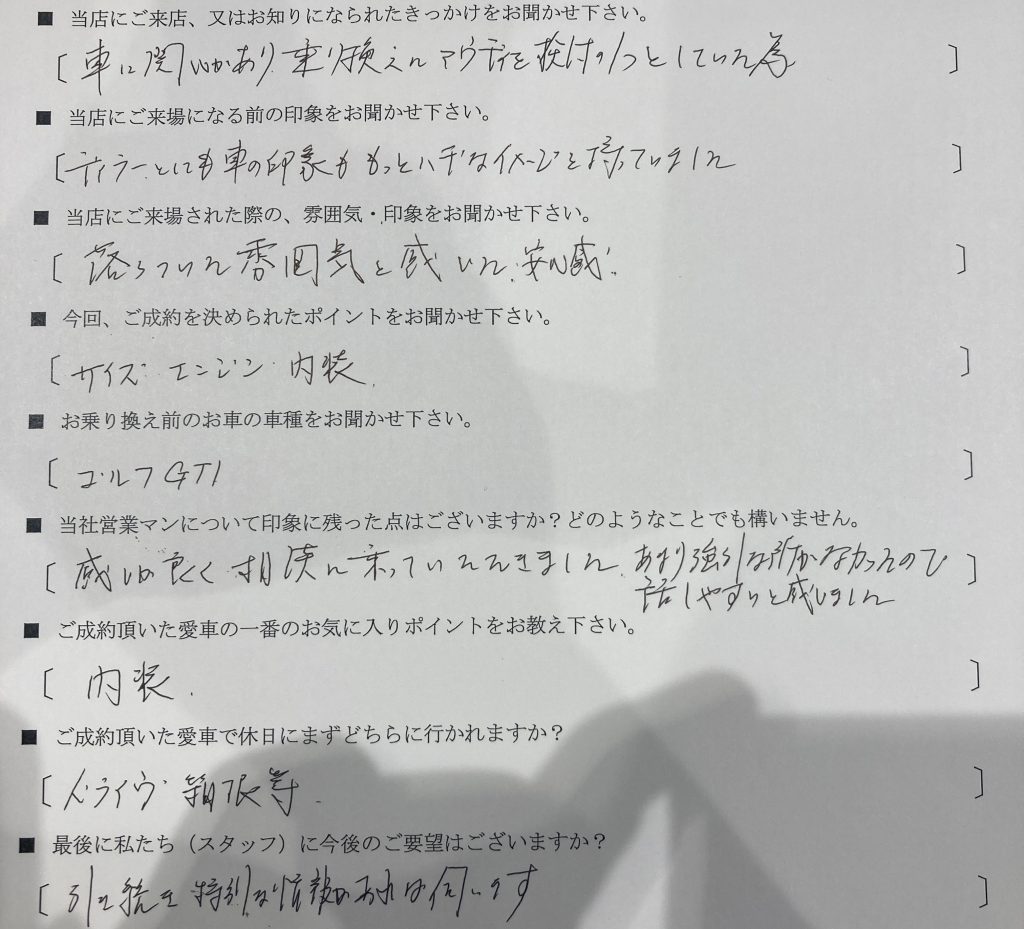 ■ 当店にご来店、又はお知りになられたきっかけをお聞かせ下さい。
[ 車に関心があり 乗り換えにアウディを検討の1つとしていた為 ]
■ 当店にご来場になる前の印象をお聞かせ下さい。
[ ディーラーとしても車の印象ももっとハデなイメージを持っていました ]
■ 当店にご来場された際の、雰囲気・印象をお聞かせ下さい。
[ 落ちついた雰囲気と感じた. 安心感. ]
■ 今回、ご成約を決められたポイントをお聞かせ下さい。
[ サイズ・エンジン・内装. ]
■ お乗り換え前のお車の車種をお聞かせ下さい。
[ ゴルフGTI ]
■ 当社営業マンについて印象に残った点はございますか？どのようなことでも構いません。
[ 感じが良く 相談に乗っていただきました. あまり強引な所がなかったので ]
話しやすいと感じました
■ ご成約頂いた愛車の一番のお気に入りポイントをお教え下さい。
[ 内装. ]
■ ご成約頂いた愛車で休日にまずどちらに行かれますか？
[ ドライヴ 箱根等. ]
■ 最後に私たち（スタッフ）に今後のご要望はございますか？
[ 引き続き 特別な情報があれば伺います ]